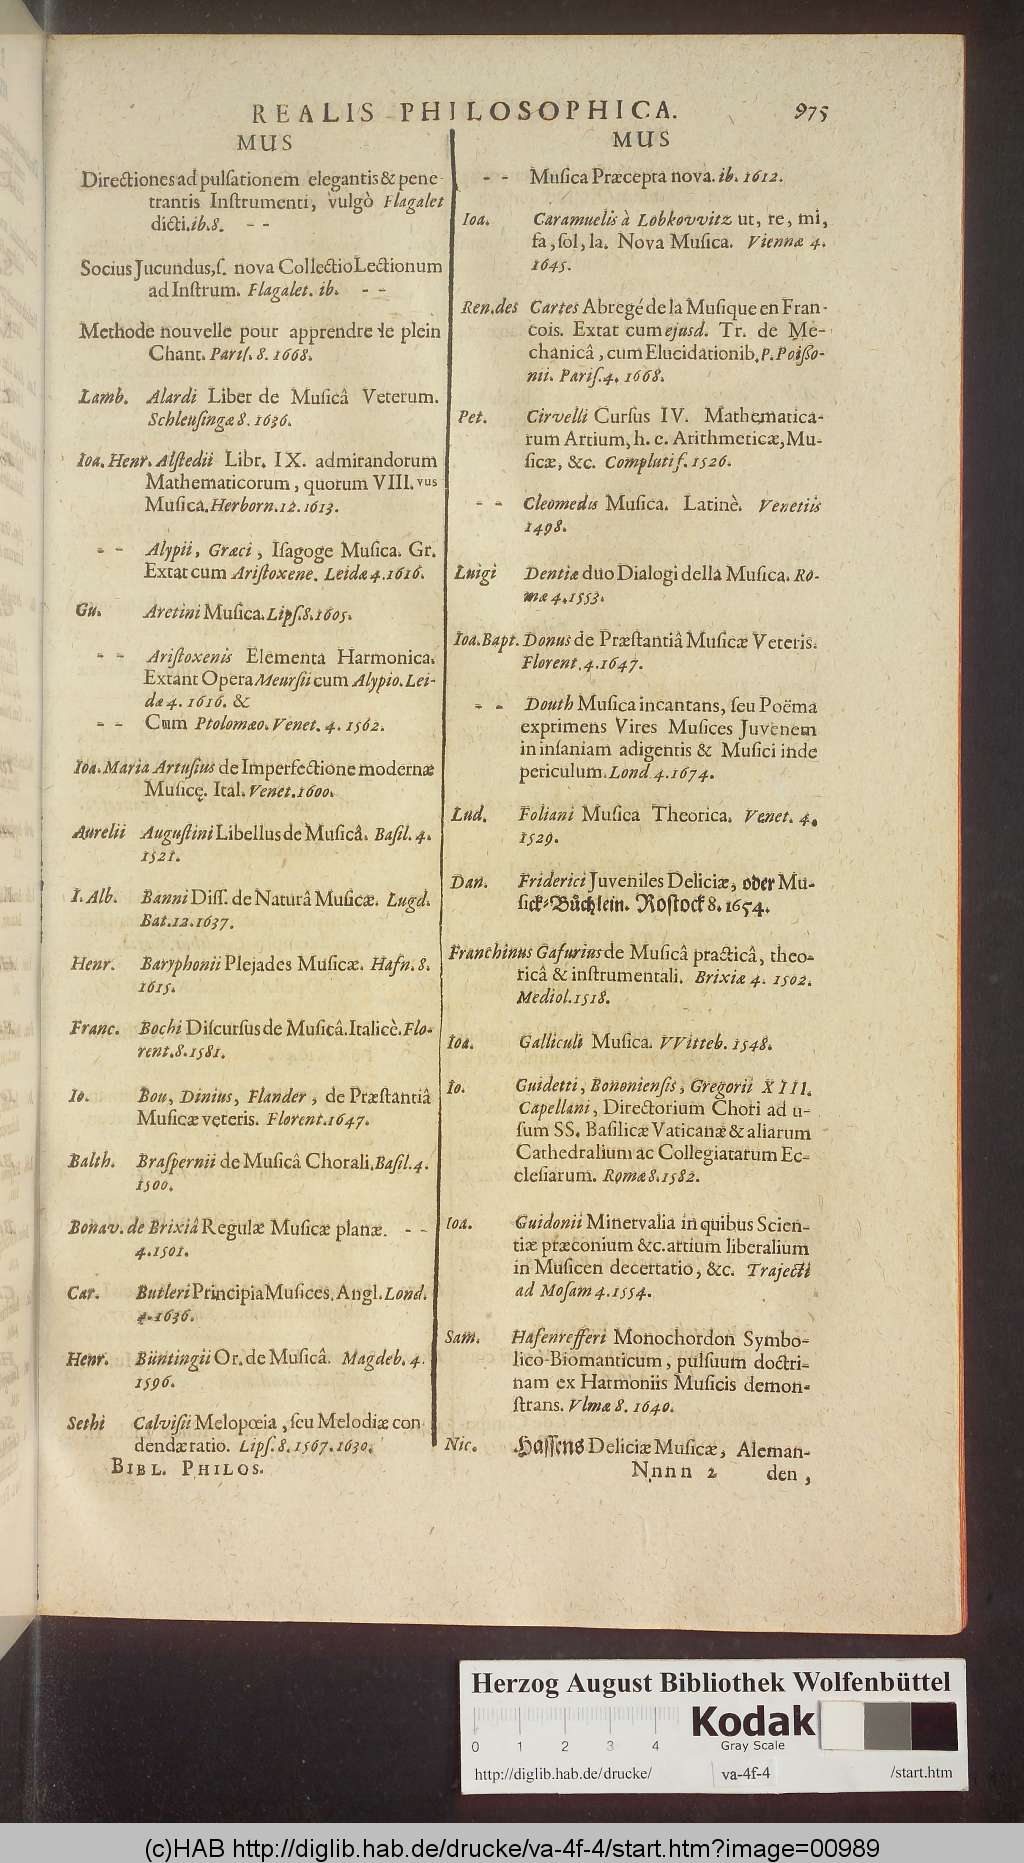 REALIS PHILOSOPHICA. 975
MUS
Directiones ad pulſationem elegantis & pene-
trantis Inſtrumenti, vulgò Flagalet
dicti. ib. 8. - -
Socius Jucundus, ſ. nova Collectio Lectionum
ad Inſtrum. Flagalet. ib. - -
Methode nouvelle pour apprendre le plein
Chant. Pariſ. 8. 1668.
Lamb. Alardi Liber de Muſicâ Veterum.
Schleuſingæ 8. 1636.
Ioa. Henr. Alſtedii Libr. IX. admirandorum
Mathematicorum, quorum VIII.vus
Muſica. Herborn. 12. 1613.
- - Alypii, Græci, Iſagoge Muſica. Gr.
Extat cum Ariſtoxene. Leidæ 4. 1616.
Gu. Aretini Muſica. Lipſ. 8. 1605.
- - Ariſtoxenis Elementa Harmonica.
Extant Opera Meurſii cum Alypio. Lei-
dæ 4. 1616. &
- - Cum Ptolomæo. Venet. 4. 1562.
Ioa. Maria Artuſius de Imperfectione modernæ
Muſicę. Ital. Venet. 1600.
Aurelii Auguſtini Libellus de Muſicâ. Baſil. 4.
1521.
I. Alb. Banni Diſſ. de Naturâ Muſicæ. Lugd.
Bat. 12. 1637.
Henr. Baryphonii Plejades Muſicæ. Hafn. 8.
1615.
Franc. Bochi Diſcurſus de Muſicâ. Italicè. Flo-
rent. 8. 1581.
Io. Bou, Dinius, Flander, de Præſtantiâ
Muſicæ veteris. Florent. 1647.
Balth. Braſpernii de Muſicâ Chorali. Baſil. 4.
1500.
Bonav. de Brixiâ Regulæ Muſicæ planæ. - -
4. 1501.
Car. Butleri Principia Muſices. Angl. Lond.
4. 1636.
Henr. Büntingii Or. de Muſicâ. Magdeb. 4.
1596.
Sethi Calviſii Melopœia, ſeu Melodiæ con
dendæ ratio. Lipſ. 8. 1567. 1630.
BIBL. PHILOS.
MUS
- - Muſica Præcepta nova. ib. 1612.
Ioa. Caramuelis à Lobkovvitz ut, re, mi,
fa, ſol, la. Nova Muſica. Viennæ 4.
1645.
Ren. des Cartes Abregé de la Muſique en Fran-
cois. Extat cum ejusd. Tr. de Me-
chanicâ, cum Elucidationib. P. Poiſſo-
nii. Pariſ. 4. 1668.
Pet. Cirvelli Curſus IV. Mathematica-
rum Artium, h. e. Arithmeticæ, Mu-
ſicæ, &c. Compluti f. 1526.
- - Cleomedis Muſica. Latinè. Venetiis
1498.
Luigi Dentiæ duo Dialogi della Muſica. Ro-
mæ 4. 1553.
Ioa. Bapt. Donus de Præſtantiâ Muſicæ Veteris.
Florent. 4. 1647.
- - Douth Muſica incantans, ſeu Poëma
exprimens Vires Muſices Juvenem
in inſaniam adigentis & Muſici inde
periculum. Lond 4. 1674.
Lud. Foliani Muſica Theorica. Venet. 4.
1529.
Dan. Friderici Juveniles Deliciæ, oder Mu-
ſick-Bůchlein. Roſtock 8. 1654.
Franchinus Gafurius de Muſicâ practicâ, theo-
ricâ & inſtrumentali. Brixiæ 4. 1502.
Mediol. 1518.
Ioa. Galliculi Muſica. VVitteb. 1548.
Io. Guidetti, Bononienſis, Gregorii XIII.
Capellani, Directorium Chori ad u-
ſum SS. Baſilicæ Vaticanæ & aliarum
Cathedralium ac Collegiatarum Ec-
cleſiarum. Romæ 8. 1582.
Ioa. Guidonii Minervalia in quibus Scien-
tiæ præconium &c. artium liberalium
in Muſicen decertatio, &c. Trajecti
ad Moſam 4. 1554.
Sam. Haſenrefferi Monochordon Symbo-
lico-Biomanticum, pulſuum doctri-
nam ex Harmoniis Muſicis demon-
ſtrans. Vlmæ 8. 1640.
Nic. Haſſens Deliciæ Muſicæ, Aleman-
Nnnn 2 den,
Herzog August Bibliothek Wolfenbüttel
Kodak
0 1 2 3 4
Gray Scale
http://diglib.hab.de/drucke/ va-4f-4 /start.htm
(c)HAB http://diglib.hab.de/drucke/va-4f-4/start.htm?image=00989